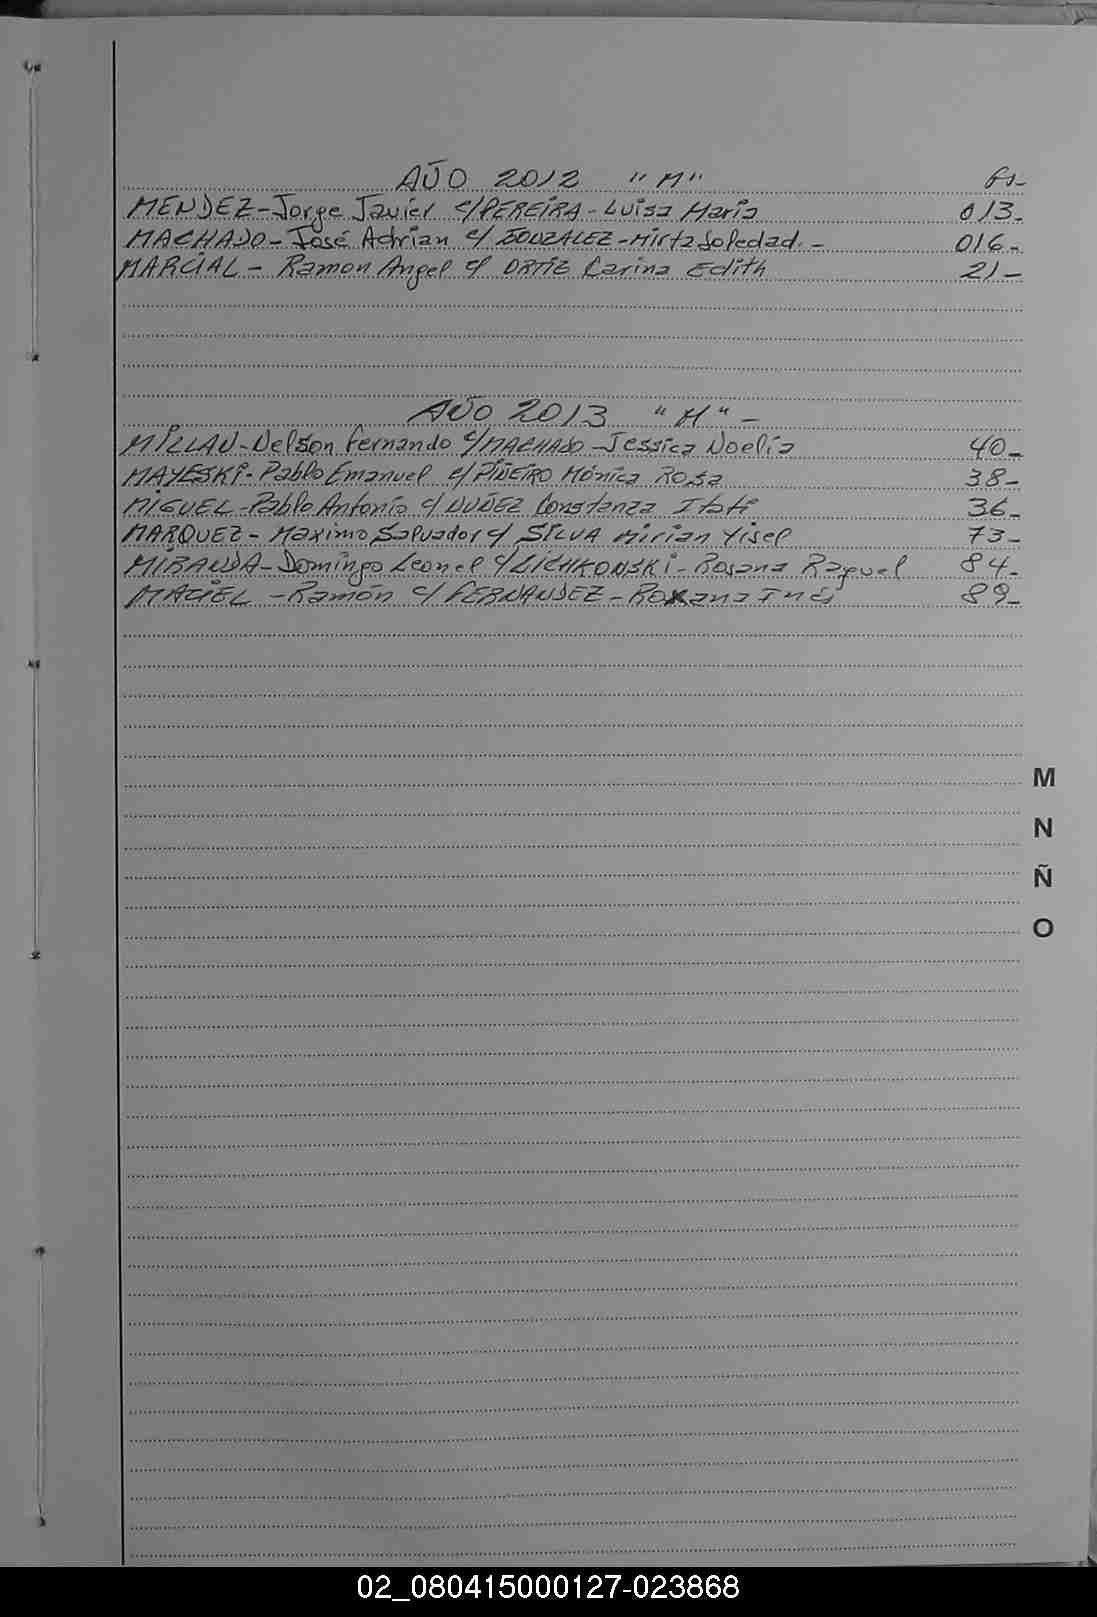 AÑO 2012 "M" fs-
MENDEZ-Jorge Javier c/PEREIRA-Luisa Maria 013-
MACHADO-José Adrian c/ GONZALEZ-Mirta Soledad.- 016-
MARCIAL- Ramon Angel c/ ORTIZ Carina Edith 21-
AÑO 2013 "M"-
MILLAN-Nelson Fernando c/MACHADO-Jessica Noelia 40-
MAYESKI-Pablo Emanuel c/ PIÑEIRO Mónica Rosa 38-
MIGUEL-Pablo Antonio c/ NUÑEZ Constanza Itatí 36-
MARQUEZ- Maximo Salvador c/ SILVA Mirian Yisel 73-
MIRANDA-Domingo Leonel c/LICHKONSKI-Rosana Raquel 84-
MACIEL -Ramón c/ FERNANDEZ-Roxana Inés 89-
M
N
Ñ
O
02_080415000127-023868